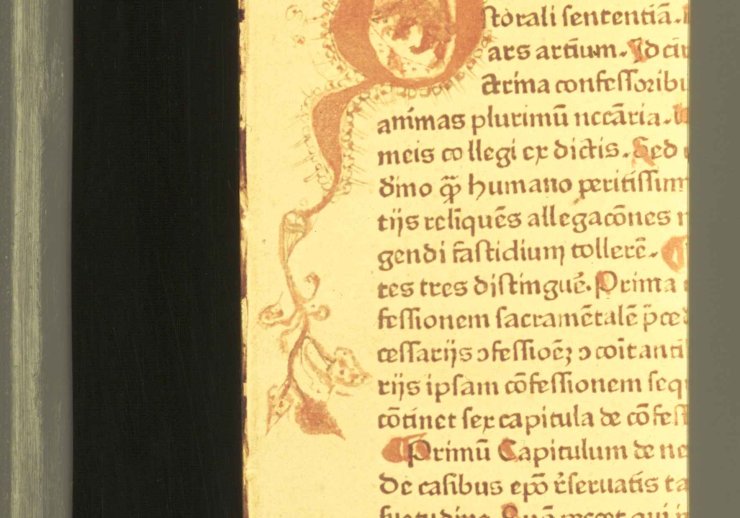 storali sententiā.
ars artium. Id cir
ctrina confessoribu
animas plurimū nccāria.
meis collegi ex dictis. Sed
dīno qꝫ humano peritissim
tijs reliquēs allegacōnes n
gendi fastidium tollerē.
tes tres distinguē. Prima
fessionem sacramētalē p̄ced
cessarijs ɔfessioēꝫ ɔcoītanti
rijs ipsam cōfessionem sequ
cōtinet sex capitula de cōfess
Primū Capitulum de ne
De casibus epō r̄seruatis ta